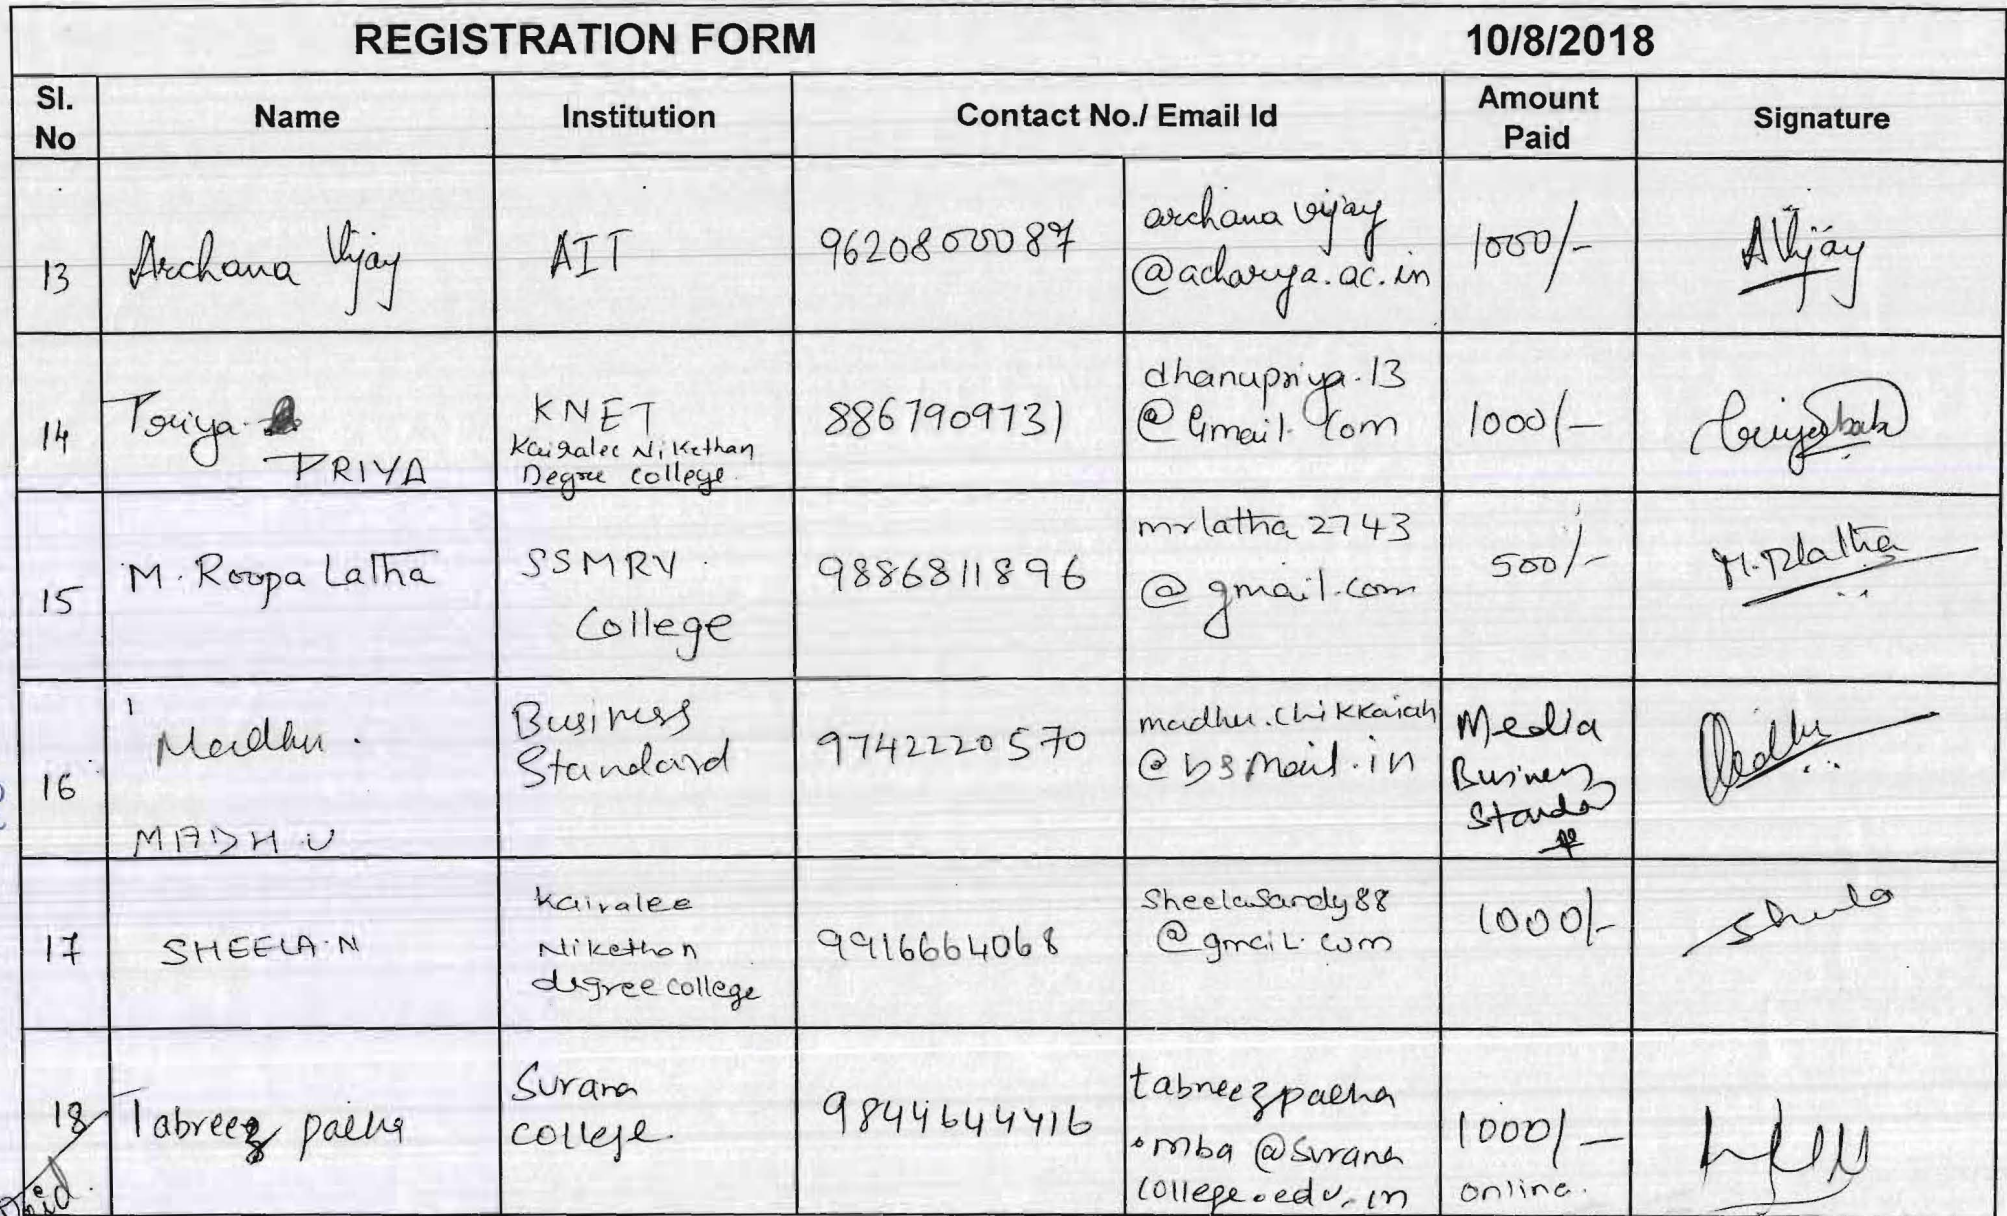 REGISTRATION FORM 10/8/2018
Sl. No Name Institution Contact No./ Email Id Amount Paid Signature
13 Archana Vijay AIT 9620800087 archana vijay
@acharya.ac.in 1000/- AVijay
14 Priya KNET 8867909731 dhanupriya.13
@Gmail.Com 1000/-
PRIYA Kairalee Nikethan
Degree College
15 M. Roopa Latha SSMRV
College 9886811896 mrlatha2743
@gmail.com 500/- M.Rlatha
16 Madhu.
MADHU Business
Standard 9742220570 madhu.chikkaiah
@bsmail.in Media
Business
Madhu
17 SHEELA.N Kairalee
Nikethan
degree college 9916664068 Sheelasandy88
@gmail.com 1000/- Sheela
18 Tabreez pasha Surana
college. 9844644416 tabreezpasha
.mba@surana
college.edu.in 1000/-
online.
Paid.